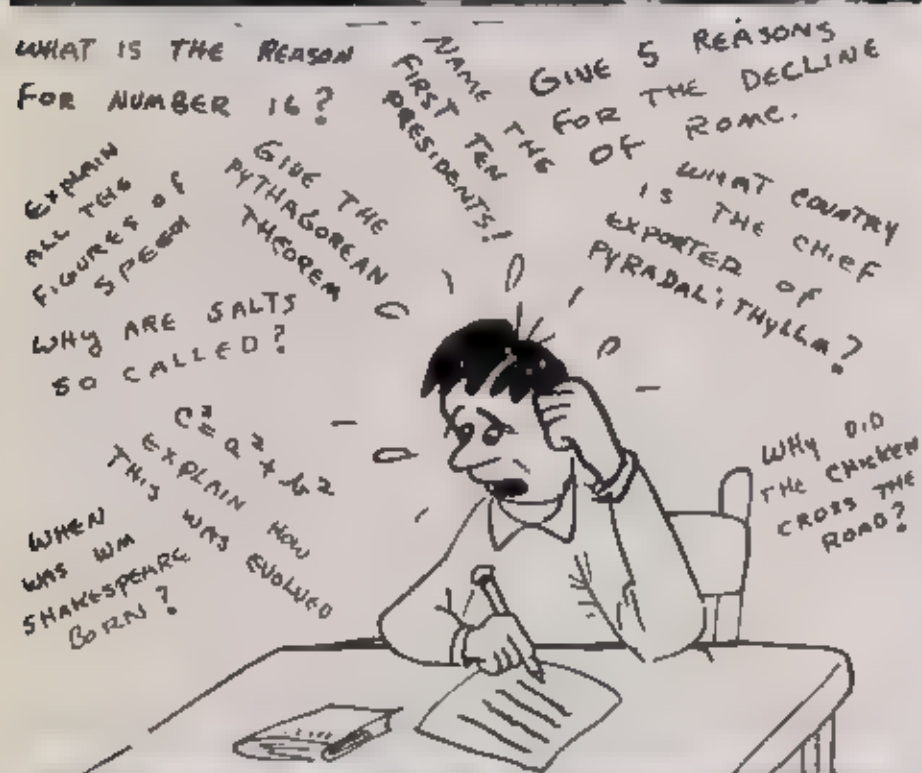 WHAT IS THE REASON
FOR NUMBER 16?
NAME THE
FIRST TEN
PRESIDENTS!
GIVE 5 REASONS
FOR THE DECLINE
OF ROME.
EXPLAIN
ALL THE
FIGURES OF
SPEECH
GIVE THE
PYTHAGOREAN
THEOREM
WHAT COUNTRY
IS THE CHIEF
EXPORTER OF
PYRADALITHYLLM?
WHY ARE SALTS
SO CALLED?
C² = a² + b²
EXPLAIN HOW
THIS WAS EVOLVED
WHEN
WAS WM
SHAKESPEARE
BORN?
WHY DID
THE CHICKEN
CROSS THE
ROAD?